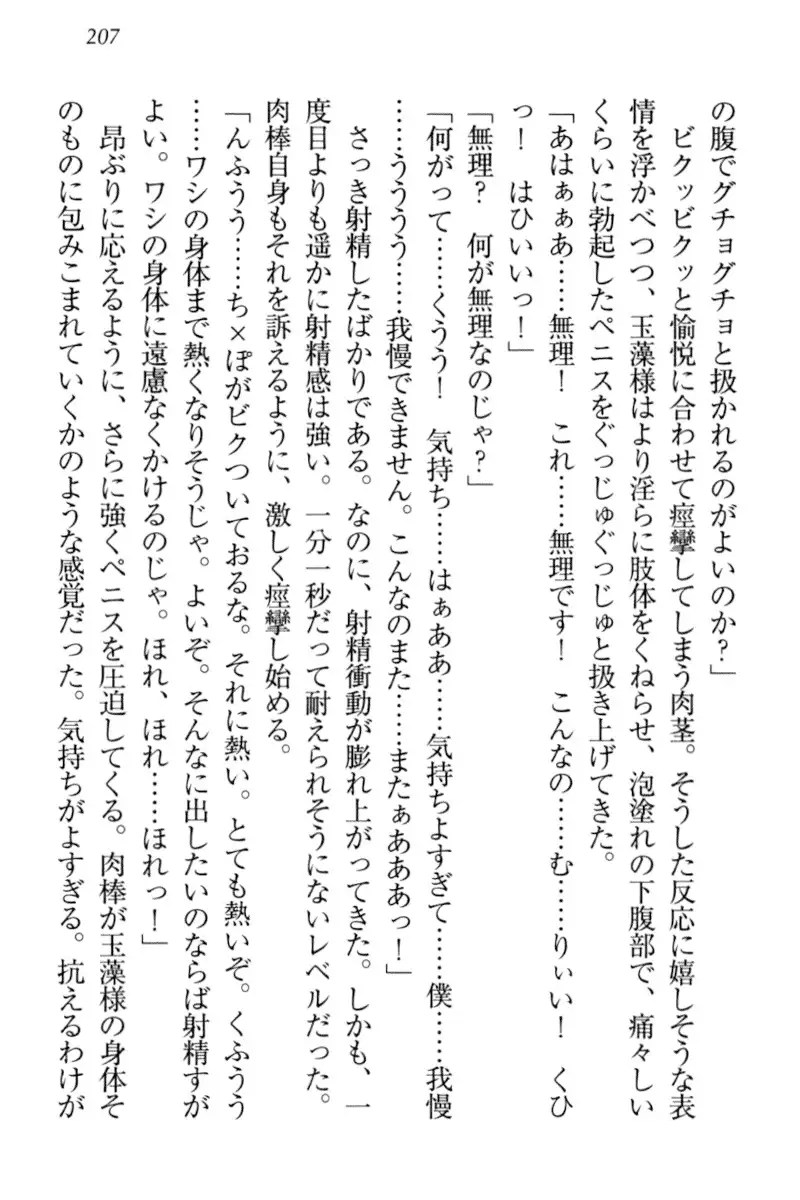 207
の腹でグチョグチョと扱かれるのがよいのか？」
　ビクッビクッと愉悦に合わせて痙攣してしまう肉茎。そうした反応に嬉しそうな表
情を浮かべつつ、玉藻様はより淫らに肢体をくねらせ、泡塗れの下腹部で、痛々しい
くらいに勃起したペニスをぐっじゅぐっじゅと扱き上げてきた。
「あはぁぁあ……無理！　これ……無理です！　こんなの……む……りぃい！　くひ
っ！　はひいいっ！」
「無理？　何が無理なのじゃ？」
「何がって……くうう！　気持ち……はぁああ……気持ちよすぎて……僕……我慢
……うううう……我慢できません。こんなのまた……またぁあああっ！」
　さっき射精したばかりである。なのに、射精衝動が膨れ上がってきた。しかも、一
度目よりも遥かに射精感は強い。一分一秒だって耐えられそうにないレベルだった。
肉棒自身もそれを訴えるように、激しく痙攣し始める。
「んふうう……ち×ぽがビクついておるな。それに熱い。とても熱いぞ。くふうう
……ワシの身体まで熱くなりそうじゃ。よいぞ。そんなに出したいのならば射精すが
よい。ワシの身体に遠慮なくかけるのじゃ。ほれ、ほれ……ほれっ！」
　昂ぶりに応えるように、さらに強くペニスを圧迫してくる。肉棒が玉藻様の身体そ
のものに包みこまれていくかのような感覚だった。気持ちがよすぎる。抗えるわけが